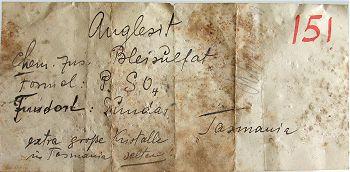 Anglesit
151
Chem. Zus. Bleisulfat
Formel: P. SO4
Fundort: Dundas
Tasmania
extra große Kristalle
in Tasmania selten!